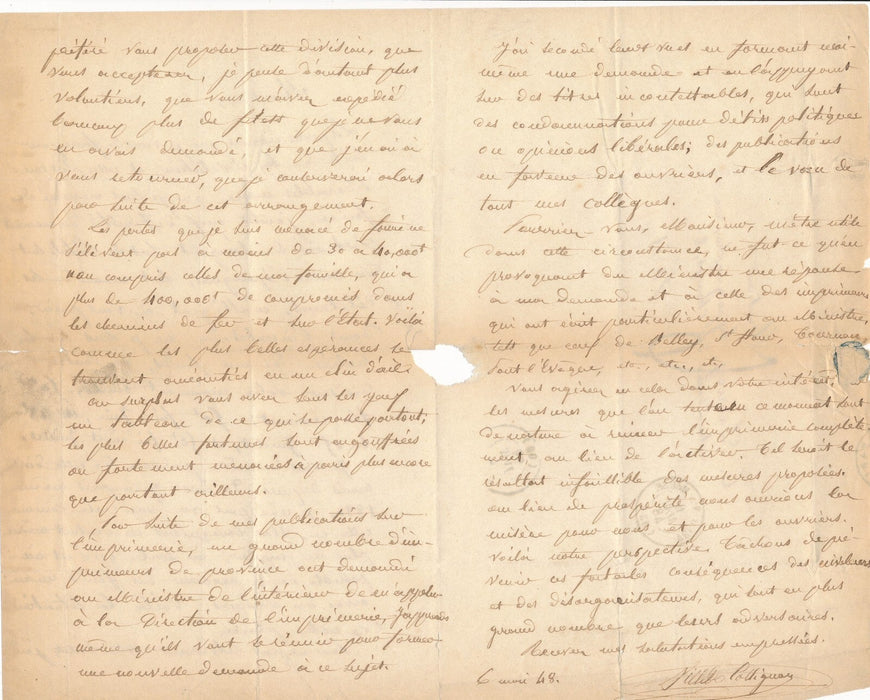 préféré vous proposer cette division, que
vous accepterez, je pense d'autant plus
volontiers, que vous m'aviez expédié
beaucoup plus de que je ne vous
en avais demandé, et que j'en ai à
vous retourner, que je conserverai alors
par suite de cet arrangement.
Les pertes que je suis menacé de
s'élèvent pas à moins de 30 à 40,000f
non compris celles de ma famille, qui a
plus de 400,000f de compromis dans
les chemins de fer et sur l'Etat. Voilà
comme les plus belles espérances se
trouvent anéanties en un clin d'œil.
Au surplus vous avez sous les yeux
un tableau de ce qui se passe partout,
les plus belles fortunes sont engouffrées
ou fortement menacées à paris plus encore
que partout ailleurs.
Par suite de mes publications sur
l'imprimerie, un grand nombre d'im-
primeurs de province ont demandé
au Ministre de l'intérieur de m'appeler
à la Direction de l'imprimerie, J'apprends
même qu'ils vont se réunir pour former
une nouvelle demande à ce sujet.
J'ai secondé leurs vues en formant moi-
même une demande et en l'appuyant
sur des titres incontestables, qui sont
des condamnations pour délits politiques
ou opinions libérales; des publications
en faveur des ouvriers, et le vœu de
tous mes collègues.
Pourriez-vous, Monsieur, m'être utile
dans cette circonstance, ne fut ce qu'en
provoquant du Ministre une réponse
à ma demande et à celle des imprimeurs
qui ont écrit particulièrement au Ministre,
tels que ceux de Belley, St Flour, Tournon,
etc., etc., etc.
Vous agirez en cela dans votre intérêt,
les mesures que l'on en ce moment sont
de nature à ruiner l'imprimerie complète-
ment au lieu de l'activer. Tel serait le
résultat infaillible des mesures proposées.
Au lieu de prospérité nous aurions la
misère pour nous et pour les ouvriers.
Voilà notre perspective. Tâchons de pré-
venir ces fatales conséquences des niveleurs
et des désorganisateurs, qui sont en plus
grand nombre que leurs adversaires.
Recevez mes salutations empressées.
6 mai 48.